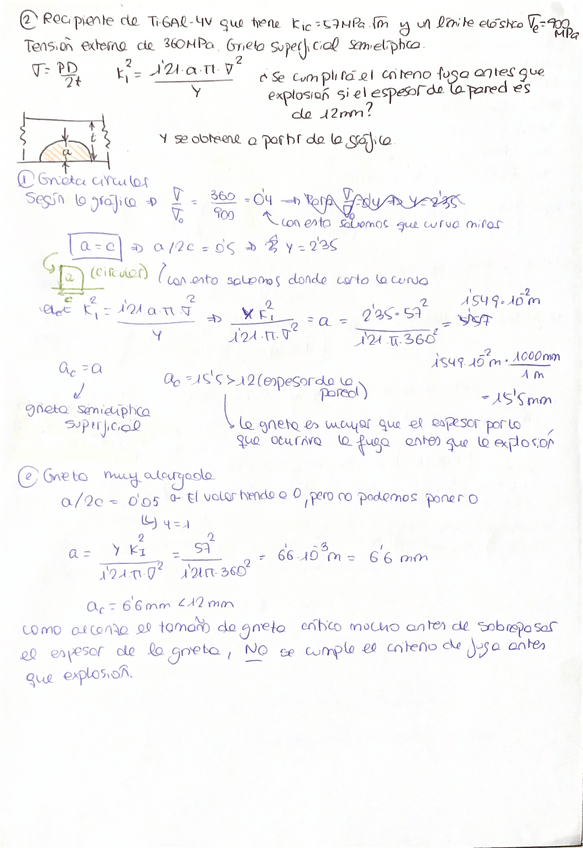 ② Recipiente de Ti-6Al-4V que tiene K_IC = 57 MPa·√m y un límite elástico σ_e = 900 MPa
Tensión externa de 360MPa. Grieta superficial semielíptica.
σ = PD/2t   K_I² = 1'21·a·π·σ²/Y   ¿Se cumplirá el criterio fuga antes que
explosión si el espesor de la pared es
de 12mm?
Y se obtiene a partir de la gráfica
a
t
① Grieta circular
Según la gráfica ⇒ σ/σ₀ = 360/900 = 0'4 →
con esto sabemos que curva mirar
a = c ⇒ a/2c = 0'5 ⇒ Y = 2'35
a (circular)
c
con esto sabemos donde corta la curva
K_I² = 1'21 a·π·σ²/Y ⇒ Y K_I²/1'21·π·σ² = a = 2'35·57²/1'21·π·360² = 1'549·10⁻² m
1'549·10⁻² m · 1000mm/1m
= 15'5 mm
a_c = a
grieta semielíptica
superficial
a_c = 15'5 > 12 (espesor de la pared)
La grieta es mayor que el espesor por lo
que ocurrirá la fuga antes que la explosión
② Grieta muy alargada
a/2c = 0'05 El valor tiende a 0, pero no podemos poner 0
↳ Y = 1
a = Y K_I²/1'21·π·σ² = 57²/1'21π·360² = 6'6·10⁻³ m = 6'6 mm
a_c = 6'6mm < 12mm
como alcanza el tamaño de grieta crítico mucho antes de sobrepasar
el espesor de la grieta, NO se cumple el criterio de fuga antes
que explosión.